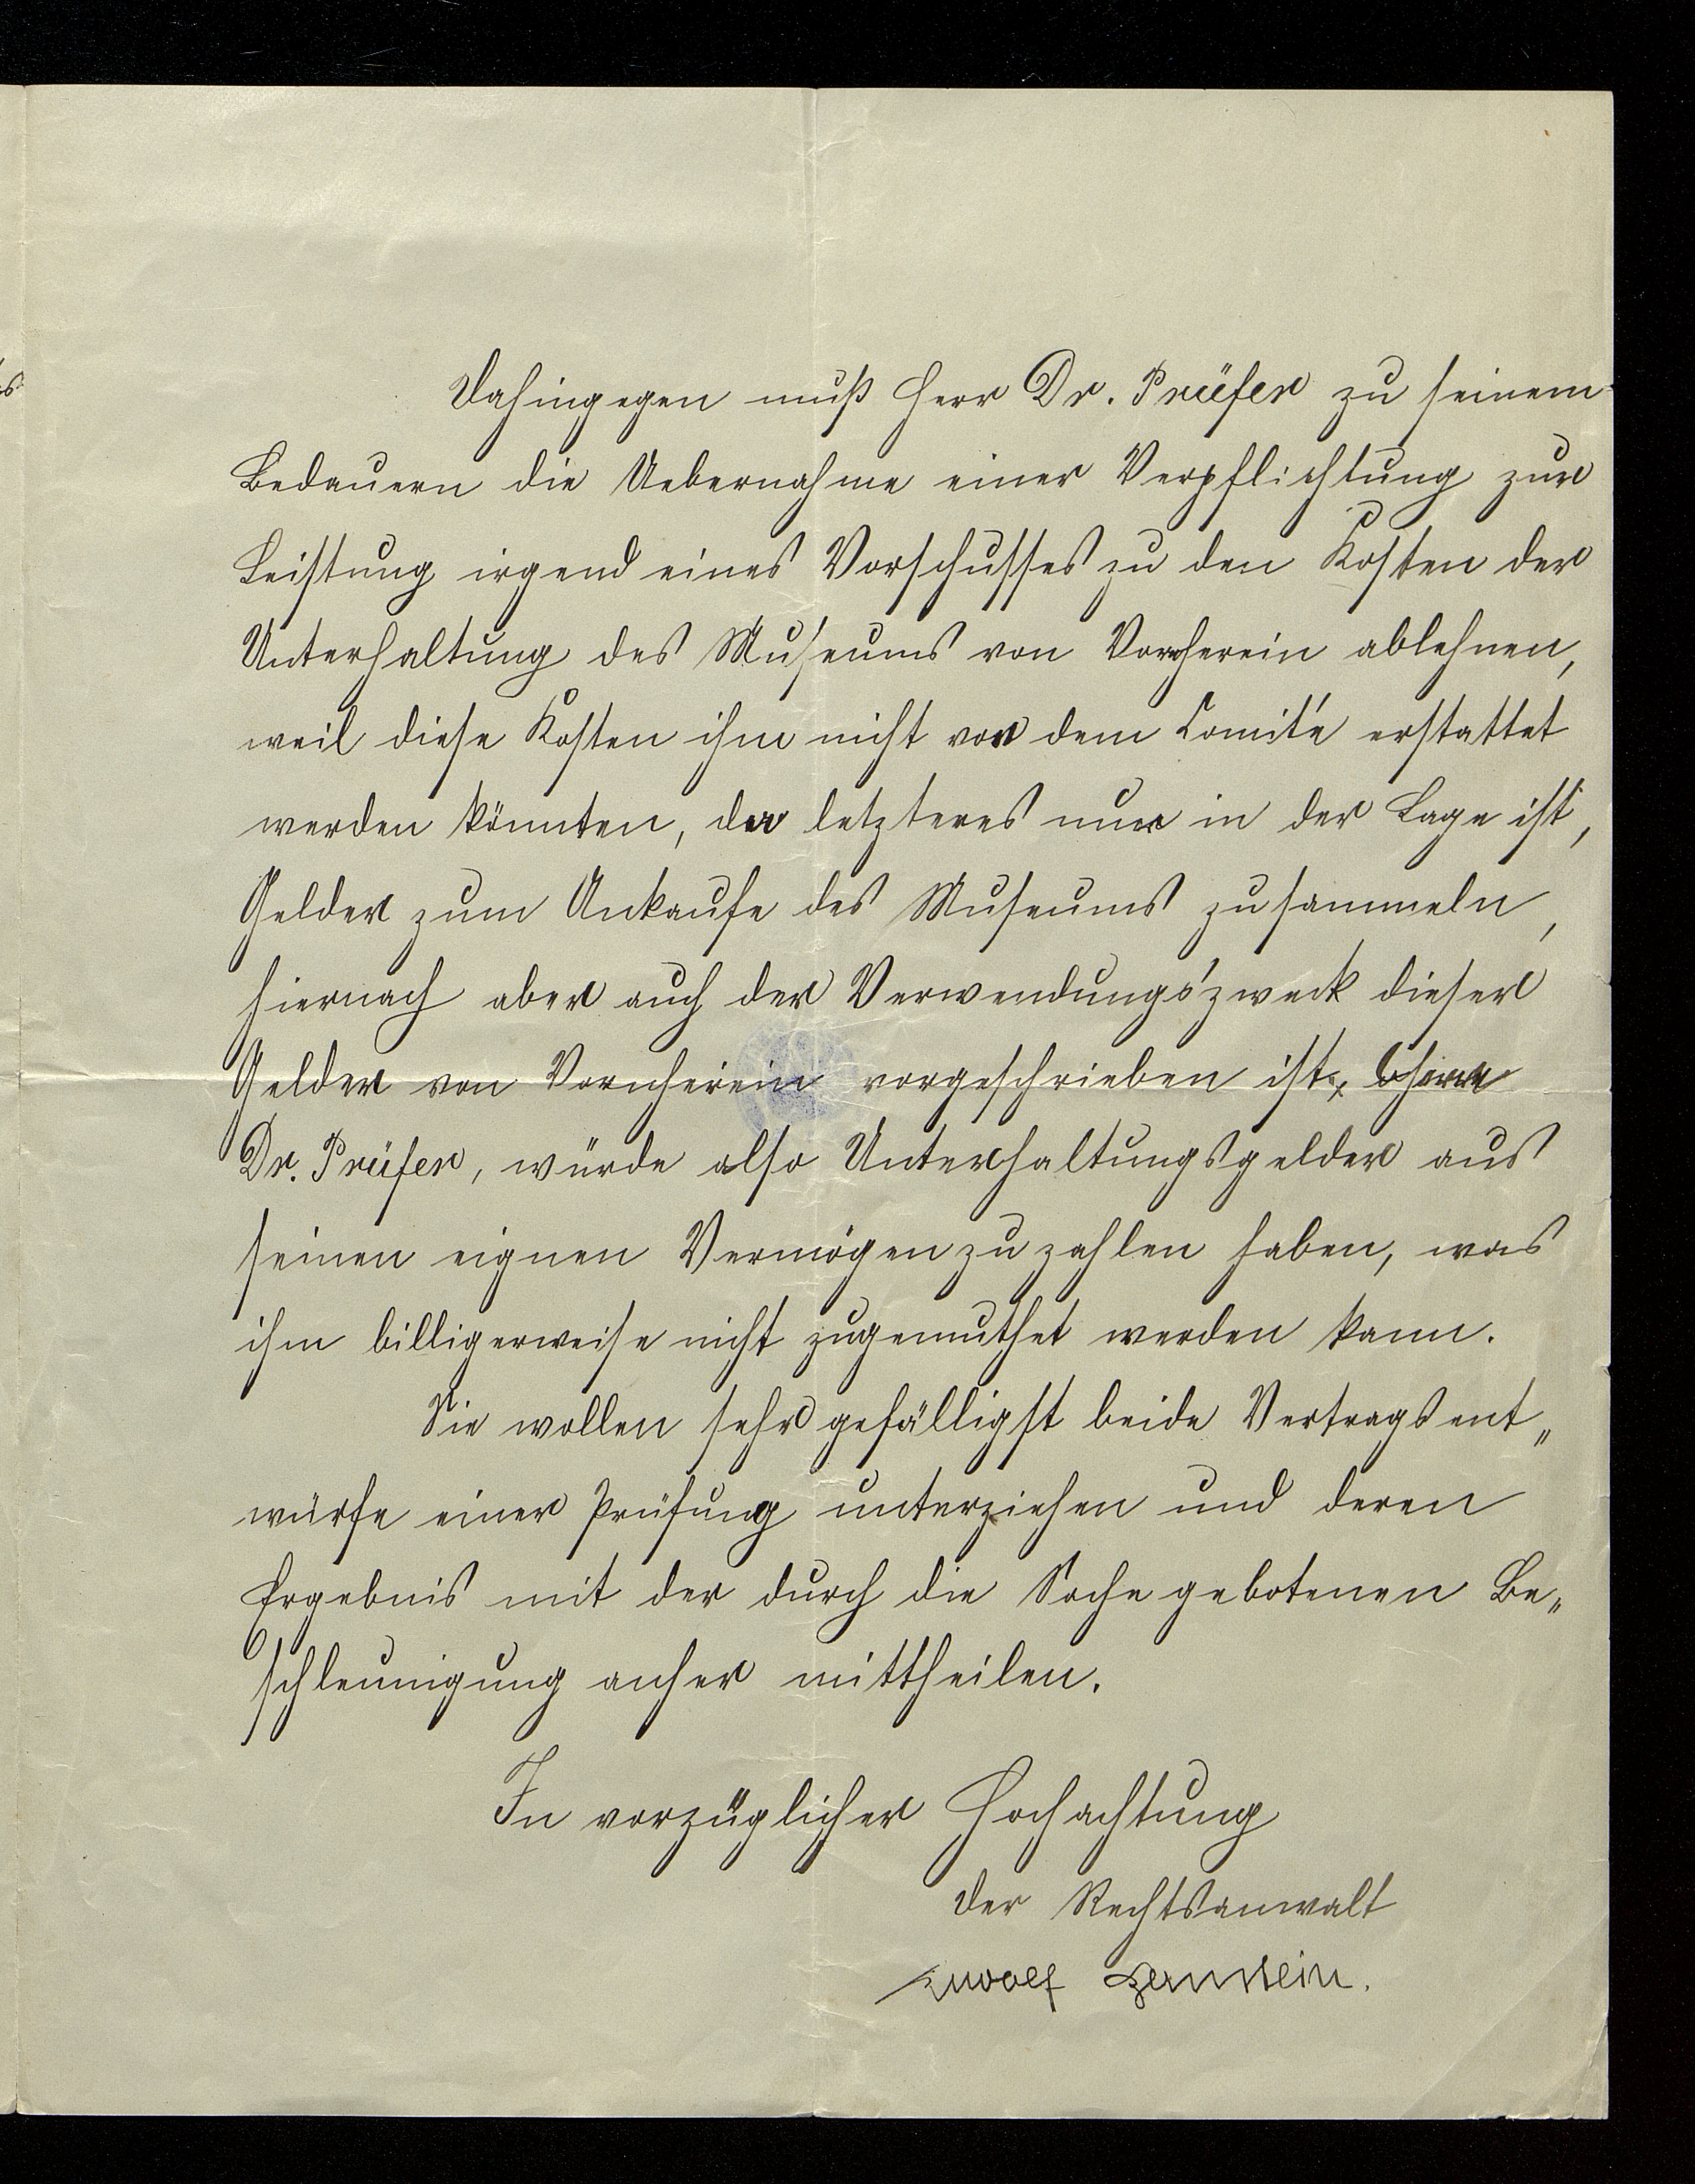 Dahingegen muß Herr Dr. Prüfer zu seinem
Bedauern die Uebernahme einer Verpflichtung zur
Leistung irgend eines Vorschusses zu den Kosten der
Unterhaltung des Museums von Vornherein ablehnen,
weil diese Kosten ihm nicht von dem Comité erstattet
werden könnten, da letzteres nur in der Lage ist,
Gelder zum Ankaufe des Museums zu sammeln,
hiernach aber auch der Verwendungszweck dieser
Gelder von Vornherein vorgeschrieben ist, Herr
Dr. Prüfer, würde also Unterhaltungsgelder aus
seinen eignen Vermögen zu zahlen haben, was
ihm billigerweise nicht zugemuthet werden kann.
Sie wollen sehr gefälligst beide Vertragsent„
würfe einer Prüfung unterziehen und deren
Ergebnis mit der durch die Sache gebotenen Be„
schleunigung anher mittheilen.
In vorzüglicher Hochachtung
Der Rechtsanwalt